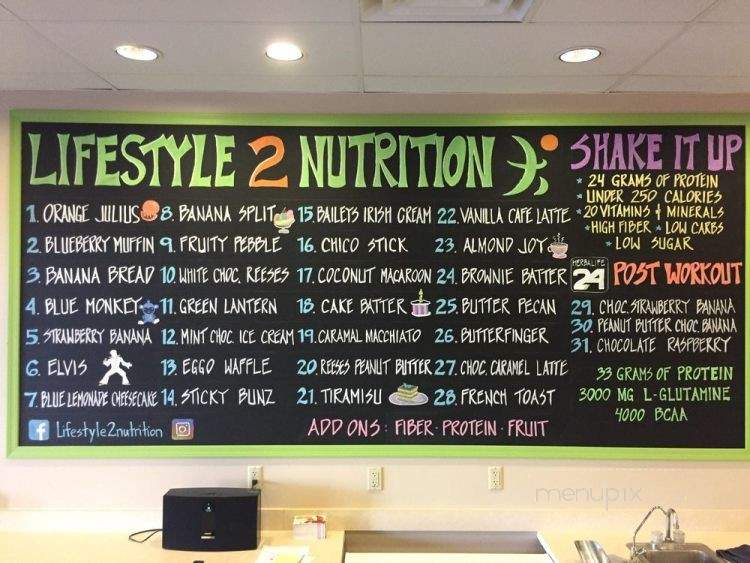 LIFESTYLE 2 NUTRITION
1. ORANGE JULIUS
2. BLUEBERRY MUFFIN
3. BANANA BREAD
4. BLUE MONKEY
5. STRAWBERRY BANANA
6. ELVIS
7. BLUE LEMONADE CHEESECAKE
8. BANANA SPLIT
9. FRUITY PEBBLE
10. WHITE CHOC. REESES
11. GREEN LANTERN
12. MINT CHOC. ICE CREAM
13. EGGO WAFFLE
14. STICKY BUNZ
15. BAILEYS IRISH CREAM
16. CHICO STICK
17. COCONUT MACAROON
18. CAKE BATTER
19. CARAMAL MACCHIATO
20. REESES PEANUT BUTTER
21. TIRAMISU
22. VANILLA CAFE LATTE
23. ALMOND JOY
24. BROWNIE BATTER
25. BUTTER PECAN
26. BUTTERFINGER
27. CHOC. CARAMEL LATTE
28. FRENCH TOAST
f Lifestyle2nutrition
ADD ONS: FIBER · PROTEIN · FRUIT
SHAKE IT UP
* 24 GRAMS OF PROTEIN
* UNDER 250 CALORIES
* 20 VITAMINS & MINERALS
* HIGH FIBER * LOW CARBS
* LOW SUGAR
HERBALIFE
24 POST WORKOUT
29. CHOC. STRAWBERRY BANANA
30. PEANUT BUTTER CHOC. BANANA
31. CHOCOLATE RASPBERRY
33 GRAMS OF PROTEIN
3000 MG L-GLUTAMINE
4000 BCAA
menupix